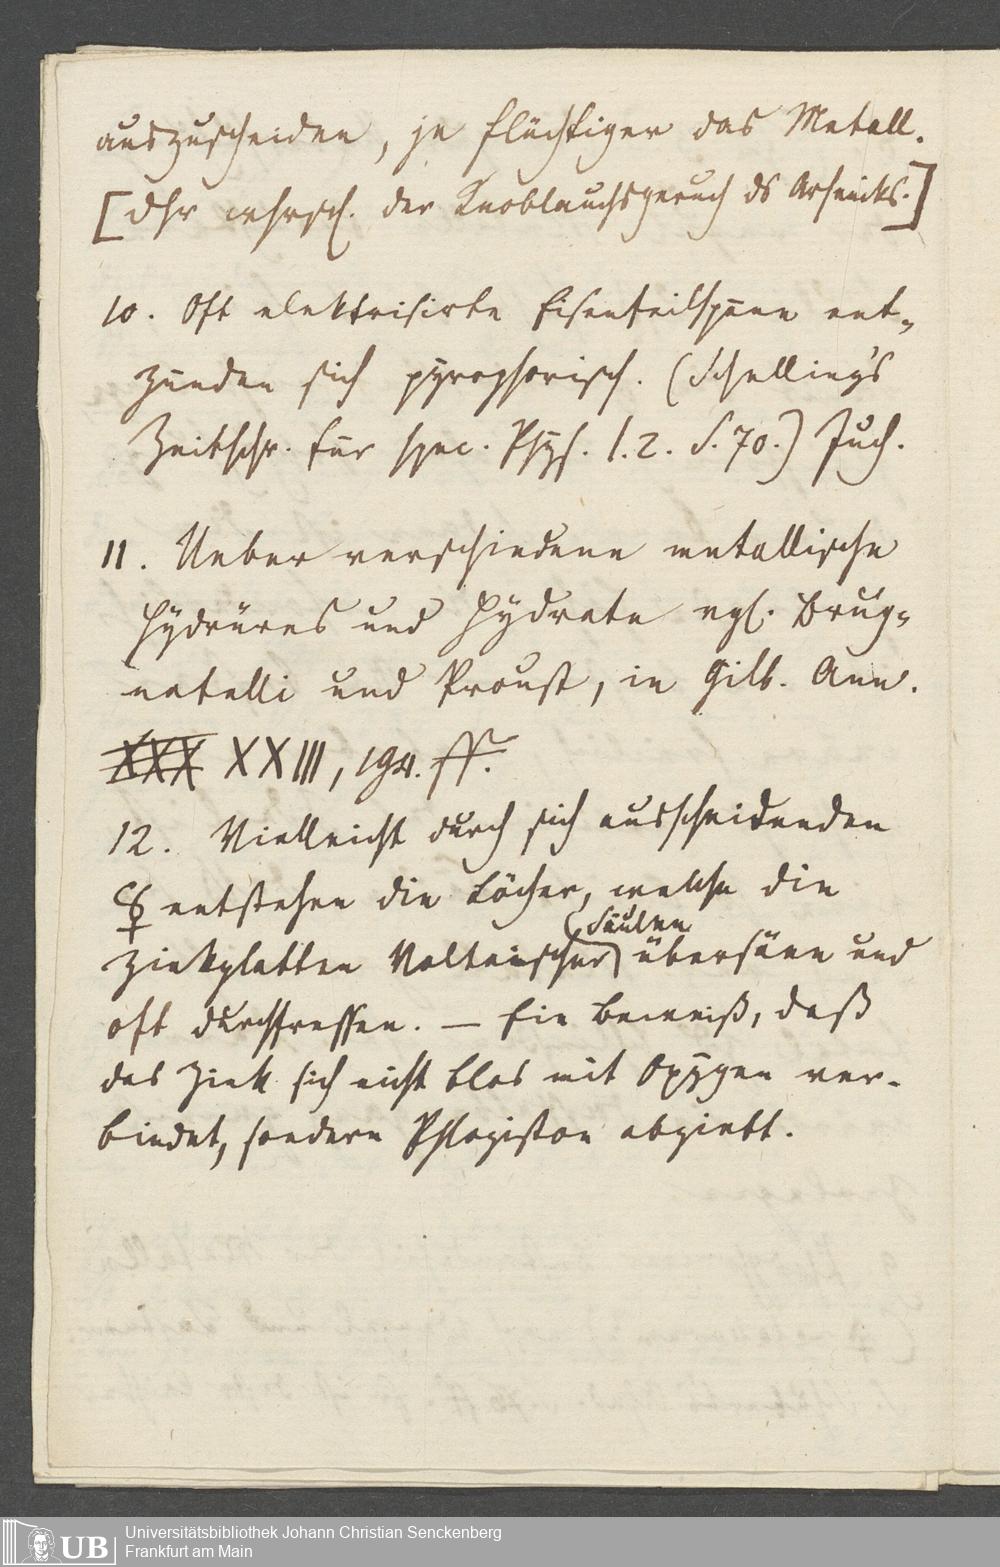 auszuscheiden, je flüchtiger das Metall.
[Dhr wahrsch. der Knoblauchsgeruch ds Arseniks.]
10. Oft elektrisirte Eisenfeilspäne ent-
zünden sich pyrophorisch. (Schelling's
Zeitschr. für spec. Phys. I. 2. S. 70.) Juch.
11. Ueber verschiedene metallische
Hydrüres und Hydrate vgl. Brug-
natelli und Proust, in Gilb. Ann.
XXX XXIII, 194. ff.
12. Vielleicht durch sich ausscheidenden
entstehen die Löcher, welche die
Säulen
Zinkplatten Voltaischer übersäen und
oft durchfressen. — Ein Beweiß, daß
das Zink sich nicht blos mit Oxygen ver-
bindet, sondern Phlogiston abgiebt.
UB Universitätsbibliothek Johann Christian Senckenberg
Frankfurt am Main